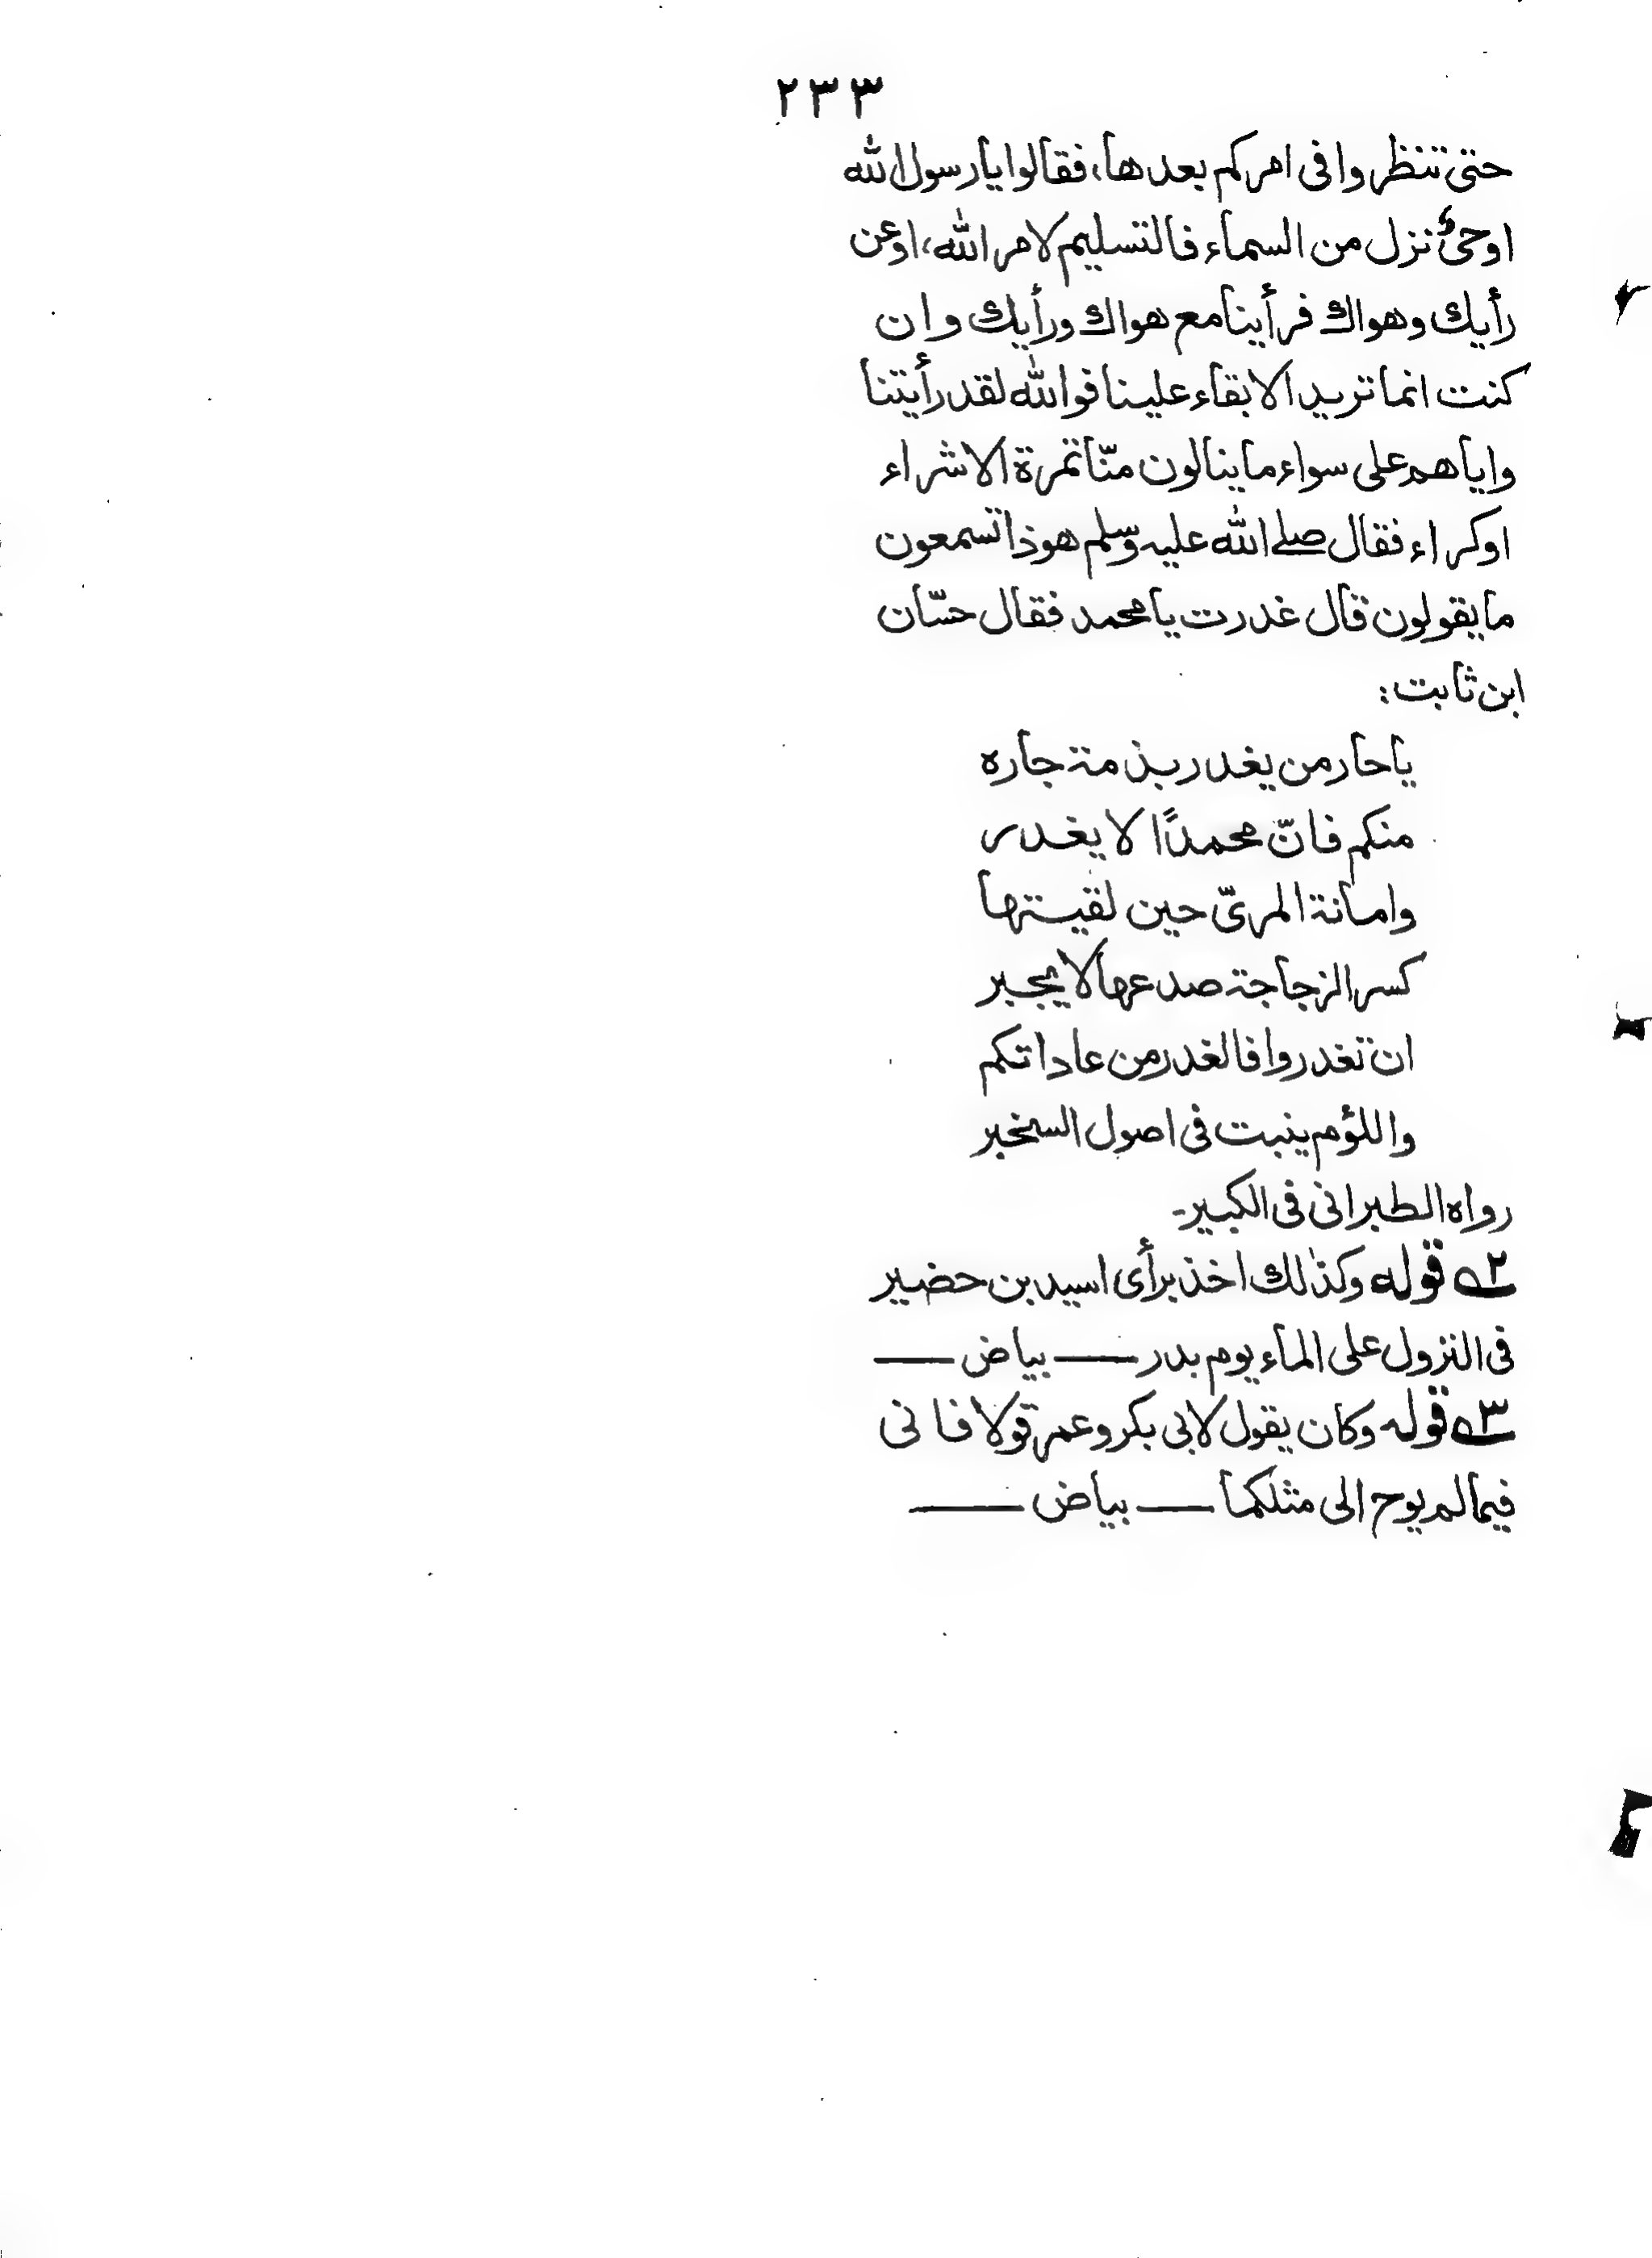 ٢٣٣
حتى تنظروا فى امركم بعدها، فقالوا يا رسول الله
اوحىٌ نزل من السماء فالتسليم لامر الله، او عن
رأيك وهواك فرأينا مع هواك ورأيك وان
كنت انما تريد الابقاء علينا فوالله لقد رأيتنا
واياهم على سواء ما ينالون منّا تمرة الا شراء
اوكراء فقال صلے الله عليه وسلم هوذا تسمعون
ما يقولون قال غدرت يا محمد فقال حسّان
ابن ثابت:
يا حار من يغدر بذمة جاره
منكم فانّ محمدًا لا يغدر
وامانة المرىّ حين لقيتها
كسر الزجاجة صدعها لا يجبر
ان تغدروا فالغدر من عاداتكم
واللؤم ينبت فى اصول السخبر
رواه الطبرانى فى الكبير-
٢ـه قوله وكذٰلك اخذ برأى اسيد بن حضير
فى النزول على الماء يوم بدر —— بياض ——
٣ـه قوله وكان يقول لابى بكر وعمر قولا فانى
فيما لم يوح الى مثلكما —— بياض ——